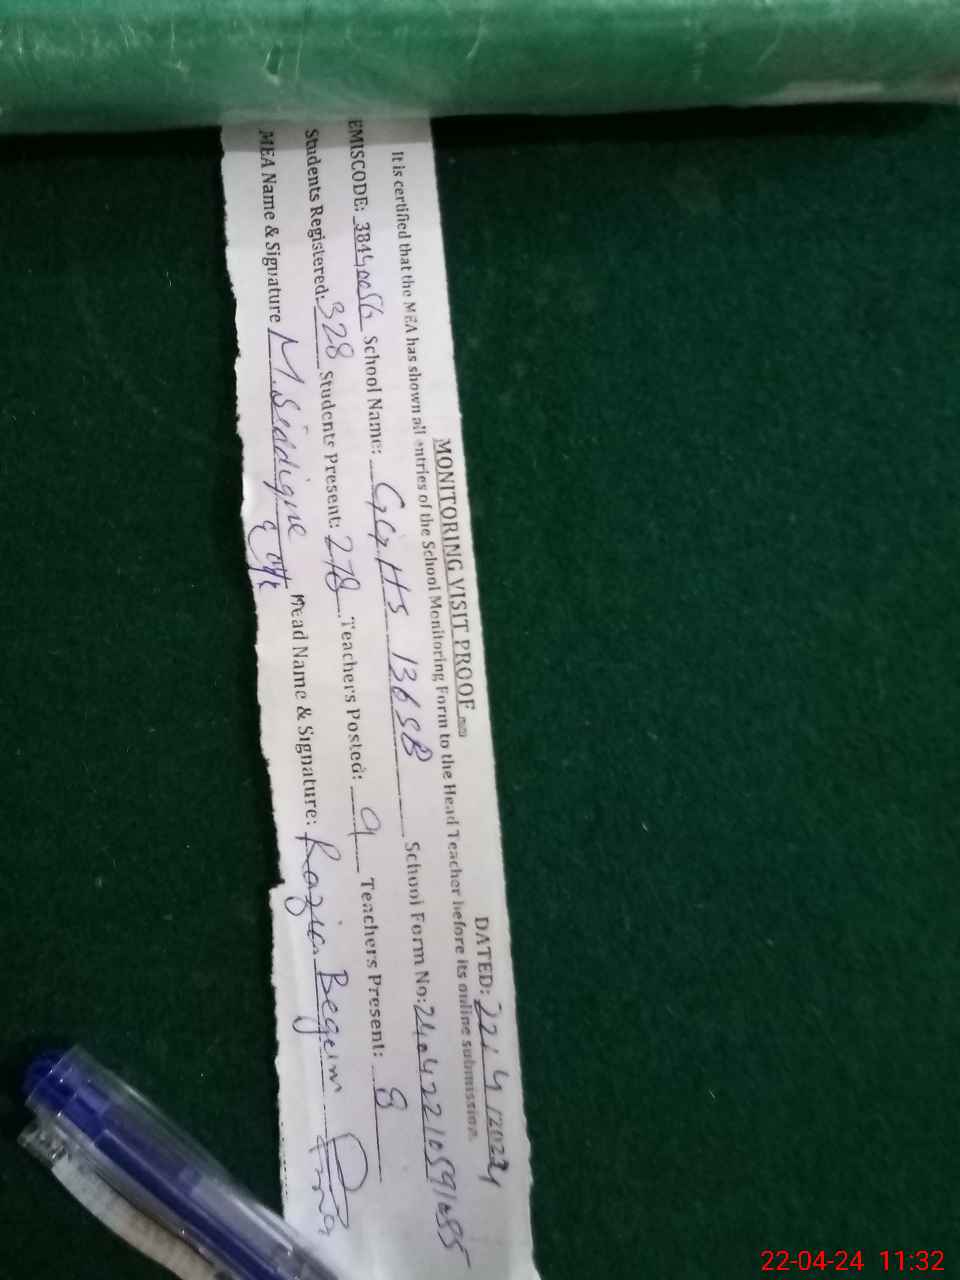 MONITORING VISIT PROOF
DATED: 22/4/2024
It is certified that the MEA has shown all entries of the School Monitoring Form to the Head Teacher before its online submission.
EMISCODE: 38440056 School Name: GGHS 136SB School Form No:
Students Registered: 328 Students Present: 278 Teachers Posted: 9 Teachers Present: 8
MEA Name & Signature M. Siddique Head Name & Signature: Razia Begum
22-04-24 11:32